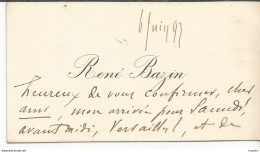 6 Juin 93
René Bazin
heureux de vous confirmer, cher
ami, mon arrivée pour Samedi
avant midi, Versailles, et de